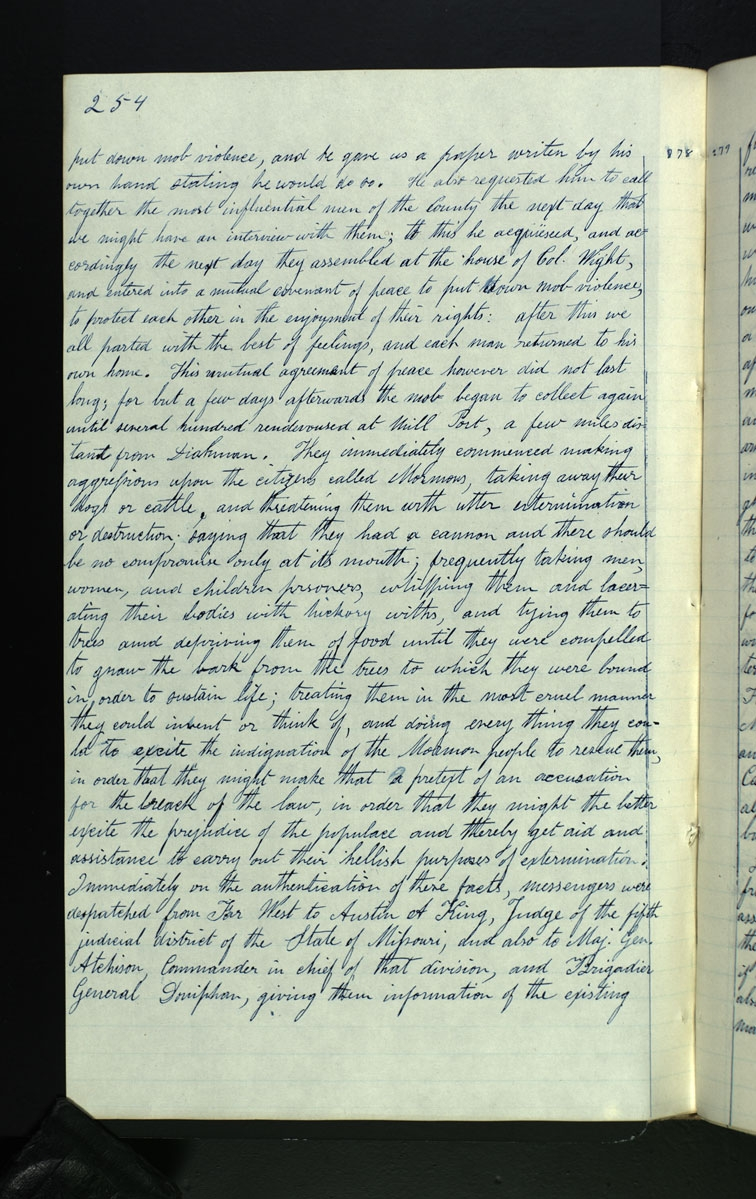 254
put down mob violence, and he gave us a paper writen by his
own hand stating he would do so. He also requested him to call
together the most influential men of the County the next day that
we might have an interview with them; to this he acquiesced, and ac-
cordingly the next day they assembled at the house of Col. Wight,
and entered into a mutual covenant of peace to put down mob violence,
to protect each other in the enjoyment of their rights: after this we
all parted with the best of feelings, and each man returned to his
own home. This mutual agreement of peace however did not last
long; for but a few days afterwards the mob began to collect again
until several hundred rendevoused at Mill Port, a few miles dis-
tant from Diahman. They immediately commenced making
aggressions upon the citizens called Mormons, taking away their
hogs or cattle, and threatening them with utter extermination
or destruction; saying that they had a cannon and there should
be no compromise only at its mouth; frequently taking men,
women, and children prisoners, whipping them and lacer=
ating their bodies with hickory withs, and tying them to
trees and depriving them of food until they were compelled
to gnaw the bark from the trees to which they were bound
in order to sustain life; treating them in the most cruel manner
they could invent or think of, and doing every thing they cou-
ld to excite the indignation of the Mormon people to rescue them,
in order that they might make that a pretext of an accusation
for the breach of the law, in order that they might the better
excite the prejudice of the populace and thereby get aid and
assistance to carry out their hellish purposes of extermination.
Immediately on the authentication of these facts, messengers were
despatched from Far West to Austin A King, Judge of the fifth
judicial district of the State of Missouri, and also to Maj. Gen.
Atchison, Commander in chief of that division, and Brigadier
General Doniphan, giving them information of the existing
878
277